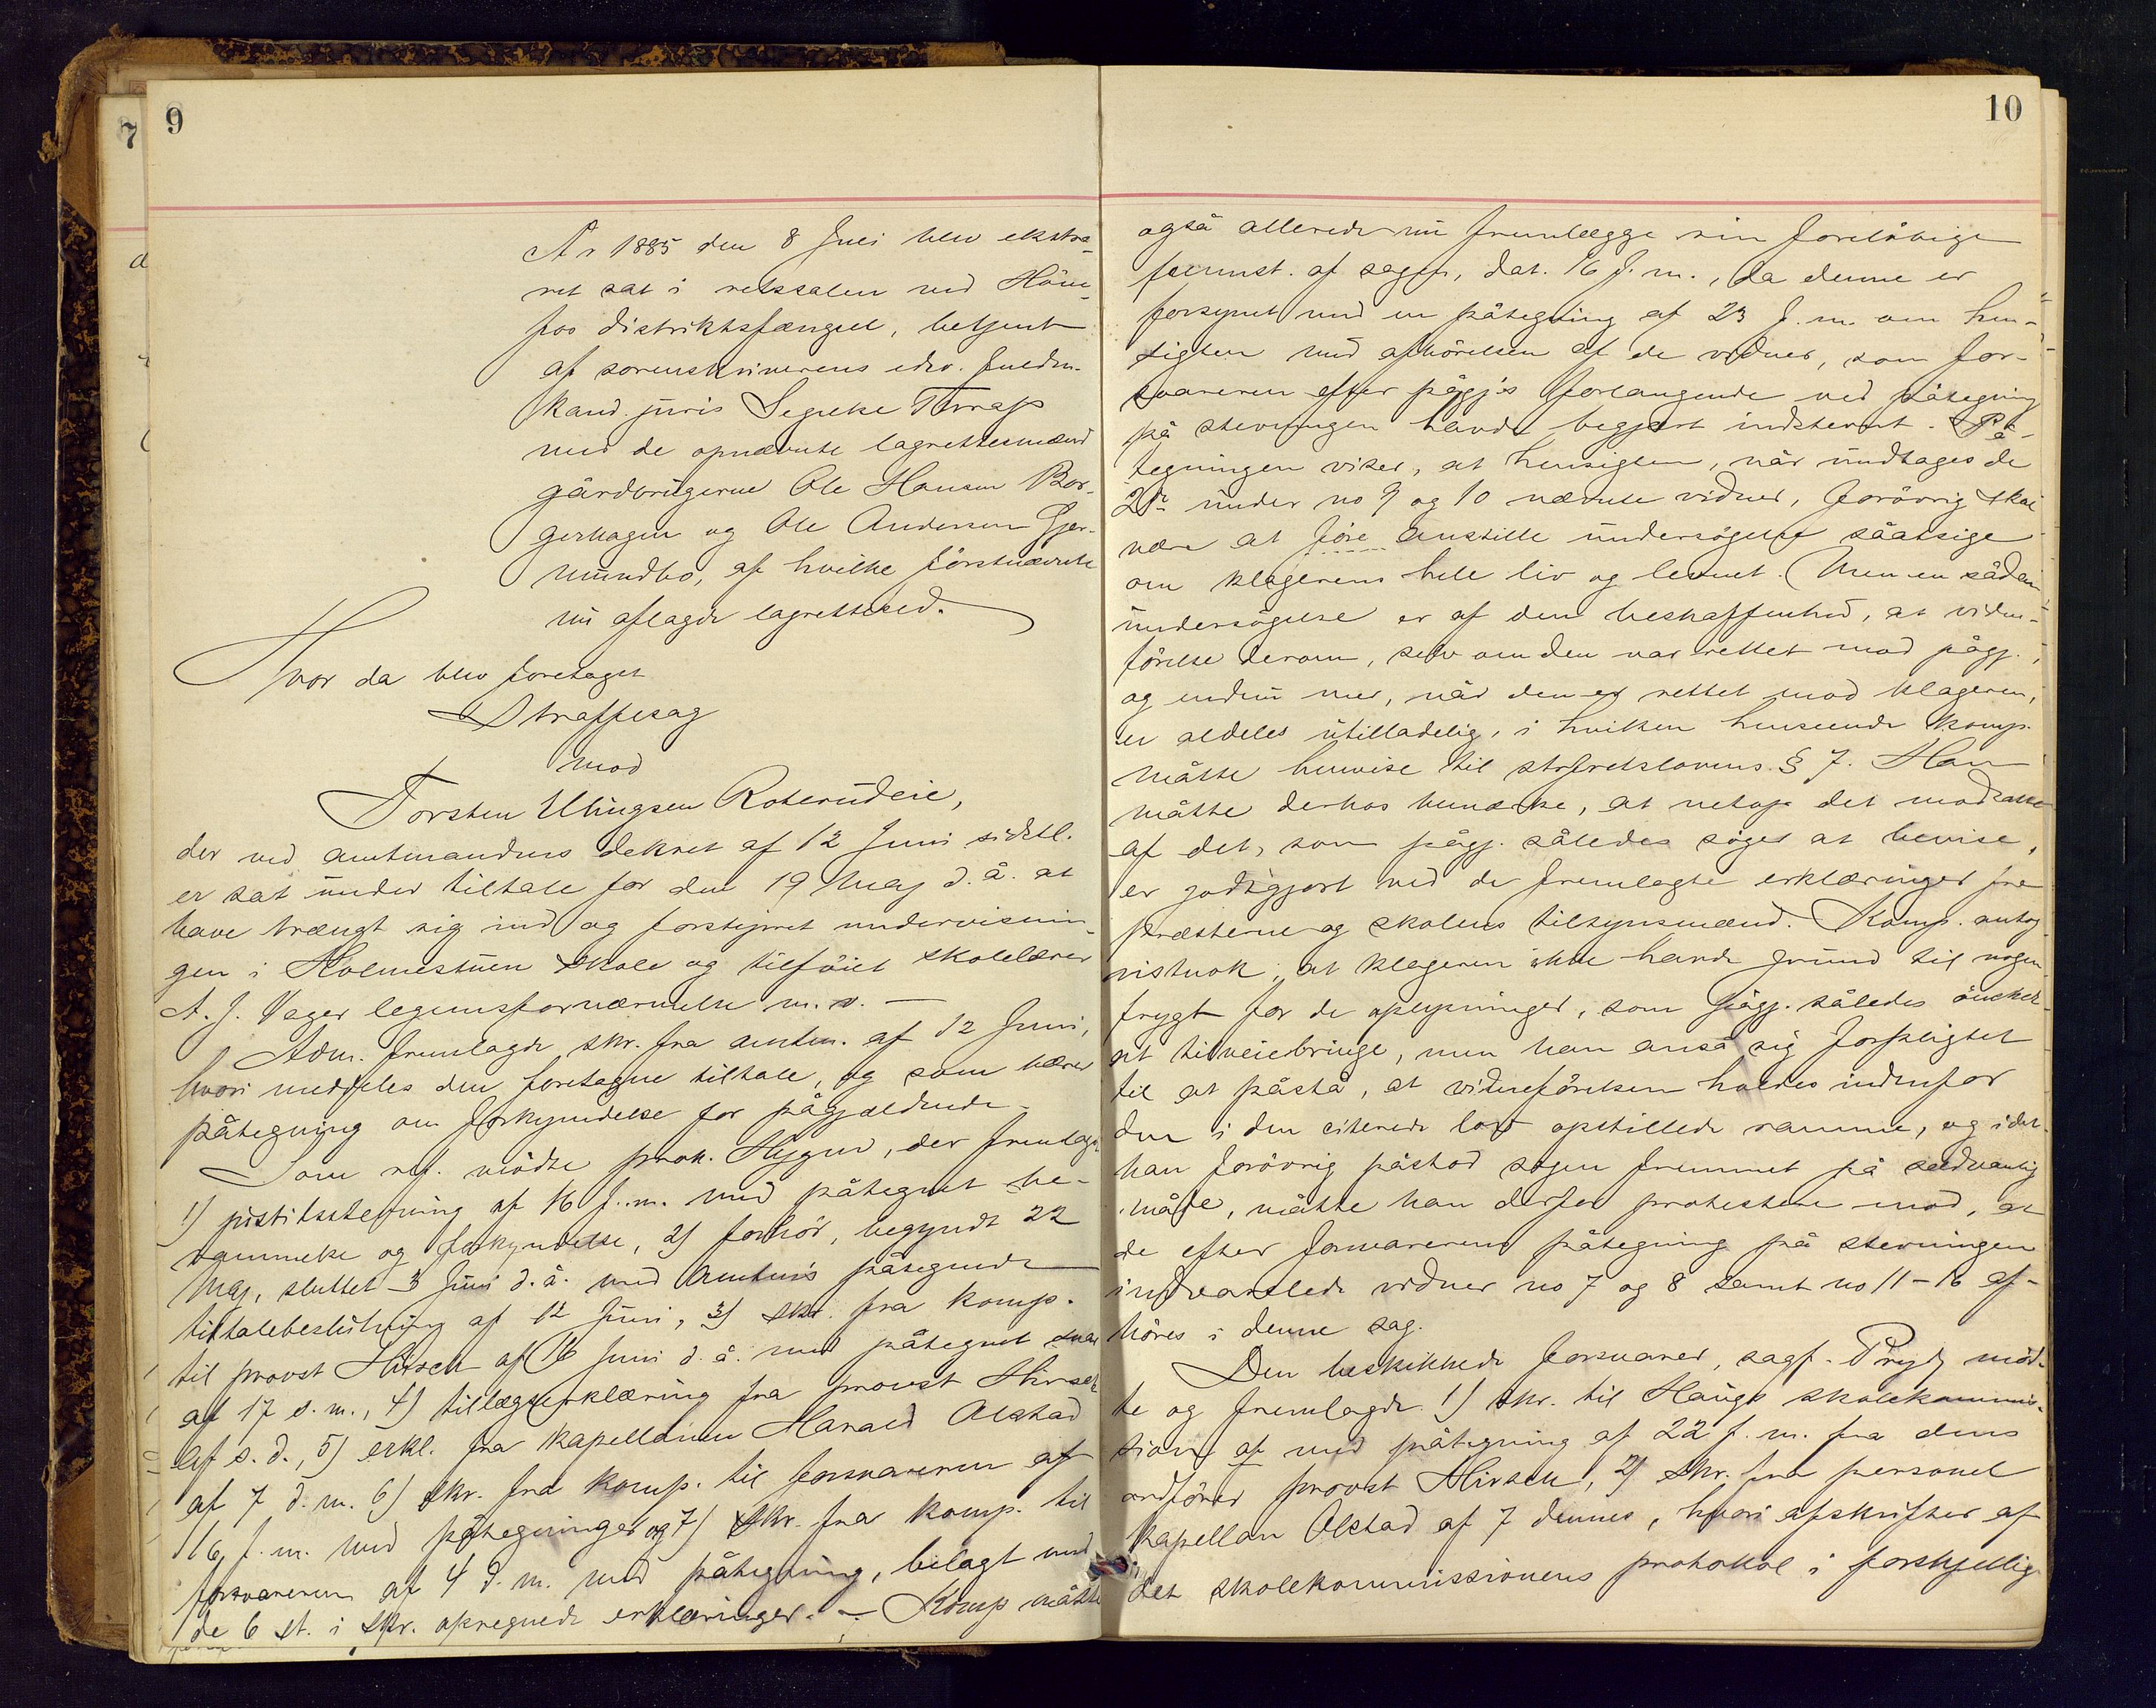 9
År 1885 den 8 Juli blev ekstra-
ret sat i retssalen ved Höne-
fos distriktsfængsel, betjent
af sorenskriverens edsv. fuldm.
kand. juris Segelke Thrap
med de opnævnte lagrettesmænd
gårdbrugerne Ole Hansen Bor-
gerhagen og Ole Andersen Gjer-
mundbo, af hvilke förstnævnte
nu aflagde lagrettesed.
Hvor da blev foretaget
Straffesag
mod
Torsten Ellingsen Roterudeie,
der ved amtmandens dekret af 12 Juni sidstl.
er sat under tiltale for den 19 Maj d. å. at
have trængt sig ind og forstyrret undervisnin-
gen i Holmestuen skole og tilföiet skolelærer
A. J. Vager legemsfornærmelse m. v. —
Adm. fremlagde skr. fra amtm. af 12 Juni,
hvori meddeles den foretagne tiltale, og som bærer
påtegning om forkyndelse for pågjældende.
Som ref. mödte prok. Hygen, der fremlagde
1) justitsstevning af 16 f. m. med påtegnet be-
rammelse og forkyndelse, 2) forhör, begyndt 22
Maj, sluttet 3 Juni d. å. med amtm's påtegnede
tiltalebeslutning af 12 Juni, 3) skr. fra komp.
til provst Hirsch af 16 Juni d. å. med påtegnet svar
af 17 s. m., 4) tillægserklæring fra provst Hirsch
af s. d., 5) erkl. fra kapellanen Harald Alstad
af 7 d. m. 6) skr. fra komp. til forsvareren af
16 f. m. med påtegninger og 7) skr. fra komp. til
forsvareren af 4 d. m. med påtegning, bilagt med
de 6 st. i skr. opregnede erklæringer. — Komp måtte
10
også allerede nu fremlægge sin foreløbige
fremst. af sagen, dat. 16 f. m., da denne er
forsynet med en påtegning af 23 f. m. om hen-
sigten med afhörelsen af de vidner, som for-
svareren efter pågj's forlangende ved påtegning
på stevningen havde begjært indstevnt. På-
tegningen viser, at hensigten, når undtages de
2de under no 9 og 10 nævnte vidner, forövrig skal
være at före anstille undersögelse såatsige
om klagerens hele liv og levnet. Men en sådan
undersögelse er af den beskaffenhed, at vidne-
förelse derom, selv om den var rettet mod pågj.,
og endnu mer, når den er rettet mod klageren,
er aldeles utilladelig, i hvilken henseende komp.
måtte henvise til strfretslovens § 7. Han
måtte derhos bemærke, at netop det modsatte
af det, som pågj. således söger at bevise,
er godtgjort ved de fremlagte erklæringer fra
præsterne og skolens tilsynsmænd. Komp. antog
vistnok, at klageren ikke havde grund til nogen
frygt for de oplysninger, som pågj. således önsker
at tilveiebringe, men han anså sig forpligtet
til at påstå, at vidneförelsen holdes indenfor
den i den citerede lov opstillede ramme, og idet
han forövrig påstod sagen fremmet på sædvanlig
måde, måtte han derfor protestere mod, at
de efter forsvarerens påtegning på stevningen
indvarslede vidner no 7 og 8 samt no 11-16 af-
höres i denne sag.
Den beskikkede forsvarer, sagf. Prydz möd-
te og fremlagde 1) skr. til Haugs skolekommis-
sion af med påtegning af 22 f. m. fra dens
ordförer provst Hirsch, 2) skr. fra personel
kapellan Alstad af 7 dennes, hvori afskrifter af
det skolekommissionens protokol i forskjellig